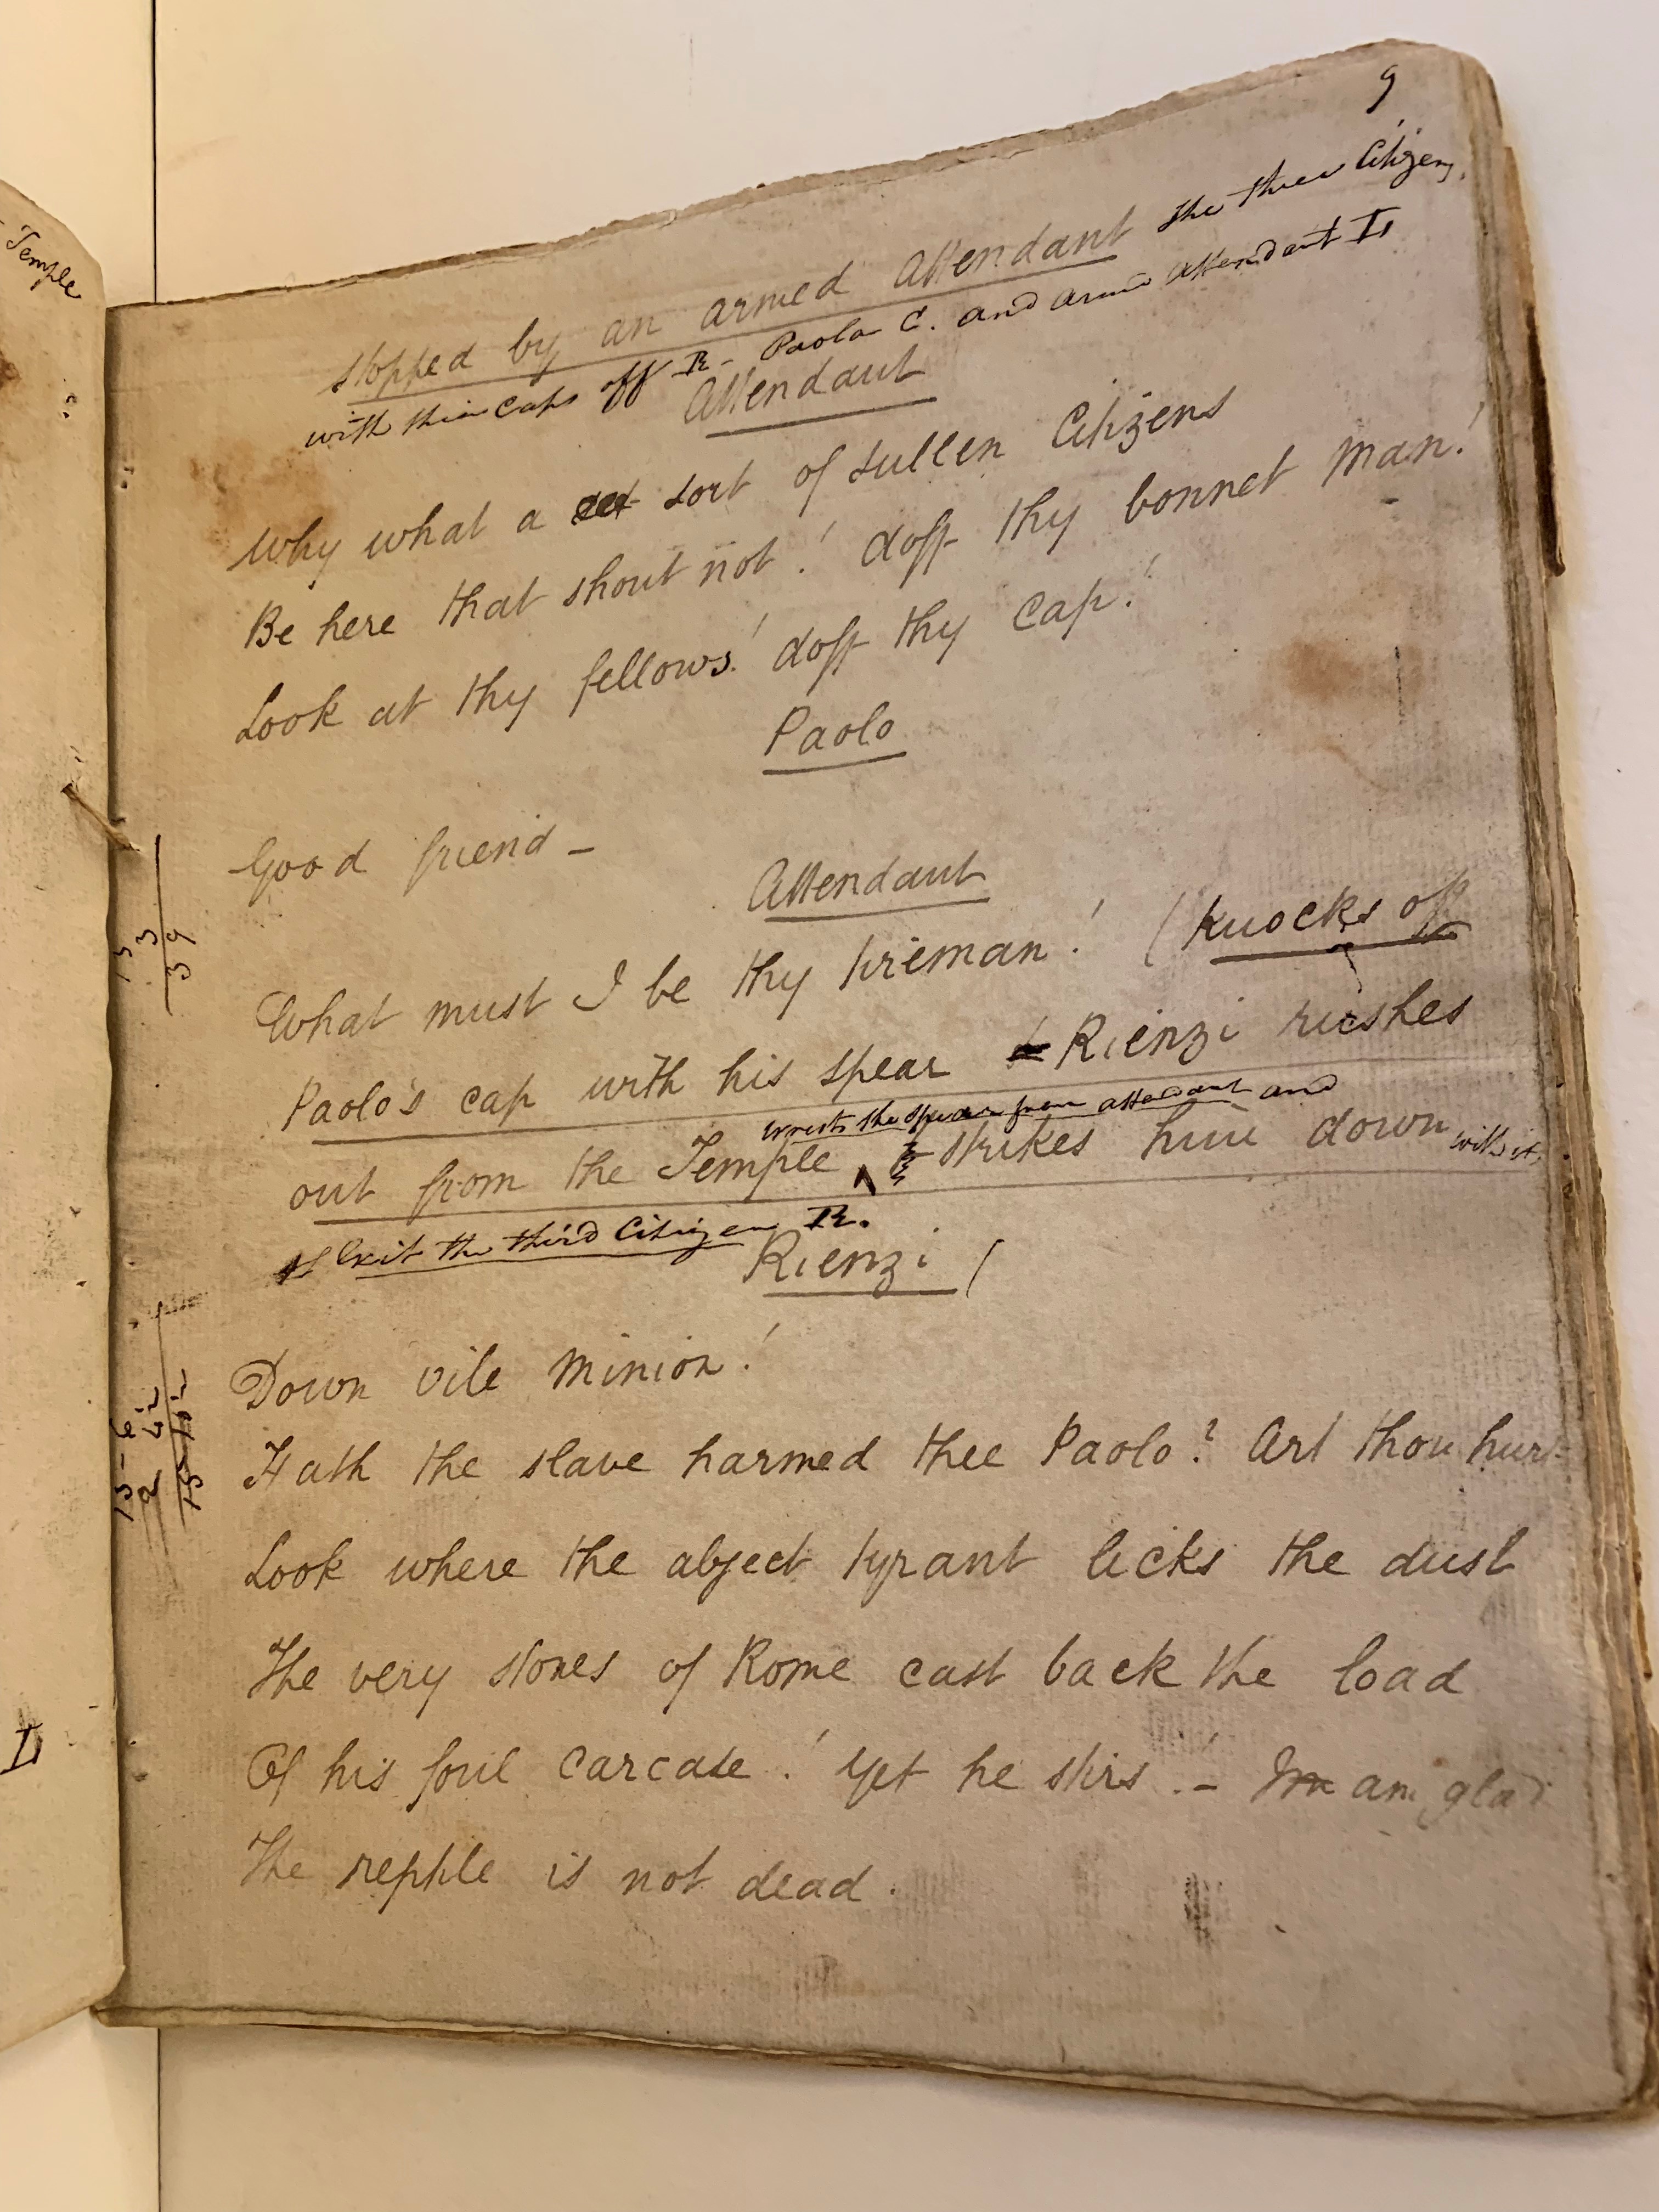 Temple
L
9
stopped by an armed Attendant the three Citizens
with their caps off R - Paolo C. and armed attendant L
Attendant
Why what a set sort of sullen Citizens
Be here that shout not! doff thy bonnet man!
Look at thy fellows! doff thy cap!
Paolo
Good friend -
Attendant
What must I be thy tireman! (knocks off
Paolo's cap with his spear & Rienzi rushes
wrests the spear from attendant and
out from the Temple & strikes him down with it.
Exit the third Citizen R.
Rienzi (
Down vile minion!
Hath the slave harmed thee Paolo? Art thou hurt
Look where the abject tyrant licks the dust
The very stones of Rome cast back the load
Of his foul carcase! Yet he stirs. - I'm am glad
The reptile is not dead.
13
3
39